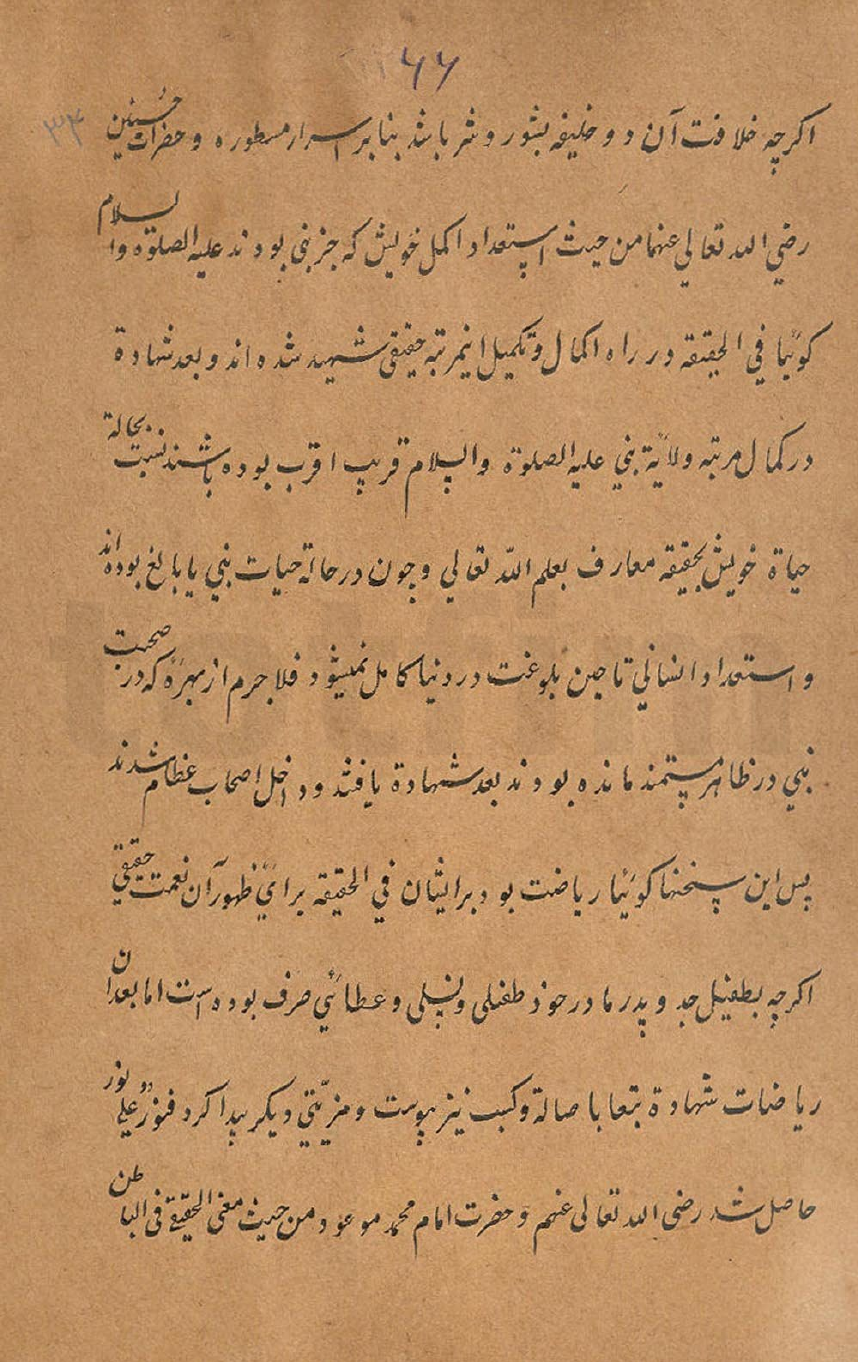 ۶۶
۳۴
اکرچه خلافت آن دو خلیفه بشور و شر باشد بنابر اسرار مسطوره و حضرات حسنین
رضي الله تعالي عنهما من حیث استعداد اکمل خویش که جز نبي بودند علیه الصلوة والسلام
کوئیا في الحقیقه در راه اکمال و تکمیل اینمرتبه حقیقي شهید شده اند و بعد شهادة
در کمال مرتبه ولایة نبي علیه الصلوة والسلام قریب اقرب بوده باشند نسبت بحالة
حیاة خویش بحقیقه معارف بعلم الله تعالي وچون در حالة حیات نبي یابالغ بوده اند
و استعداد انساني تا حین بلوغت در دنیا کامل نمیشود فلا جرم از بهرۀ که در صحبت
نبي در ظاهر مستمند مانده بودند بعد شهادة یافتند و داخل اصحاب عظام شدند
پس این سخنها کوئیا ریاضت بود برایشان في الحقیقه براي ظهور آن نعمت حقیقي
اکرچه بطفیل جد و پدر مادر خود طفیلي و عطائي صرف بوده است اما بعد ان
ریاضات شهادة بتعا باصالة و کسب نیز پیوست و مزیتي دیکر پیدا کرد فنور علي نور
حاصل شد رضی الله تعالی عنهم و حضرت امام محمد موعود من حیث معنی الحقیقي فی الباطن